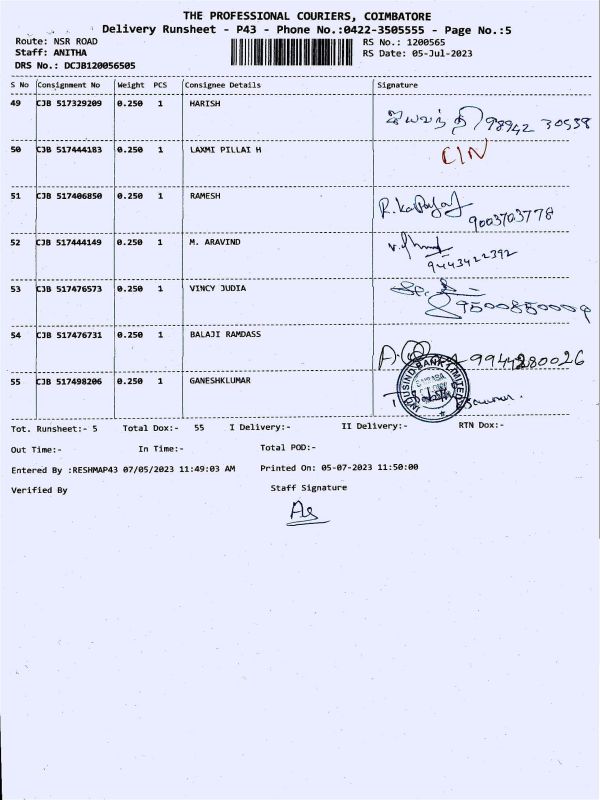 THE PROFESSIONAL COURIERS, COIMBATORE
Delivery Runsheet - P43 - Phone No.:0422-3505555 - Page No.:5
Route: NSR ROAD RS No.: 1200565
Staff: ANITHA RS Date: 05-Jul-2023
DRS No.: DCJB120056505
S No Consignment No Weight PCS Consignee Details Signature
49 CJB 517329209 0.250 1 HARISH
98942 30538
50 CJB 517444183 0.250 1 LAXMI PILLAI H CIN
51 CJB 517406850 0.250 1 RAMESH
9003703778
52 CJB 517444149 0.250 1 M. ARAVIND
9443422392
53 CJB 517476573 0.250 1 VINCY JUDIA
9500850009
54 CJB 517476731 0.250 1 BALAJI RAMDASS
9944280026
55 CJB 517498206 0.250 1 GANESHKUMAR INDUSIND BANK LIMITED
Tot. Runsheet:- 5 Total Dox:- 55 I Delivery:- II Delivery:- RTN Dox:-
Out Time:- In Time:- Total POD:-
Entered By :RESHMAP43 07/05/2023 11:49:03 AM Printed On: 05-07-2023 11:50:00
Verified By Staff Signature